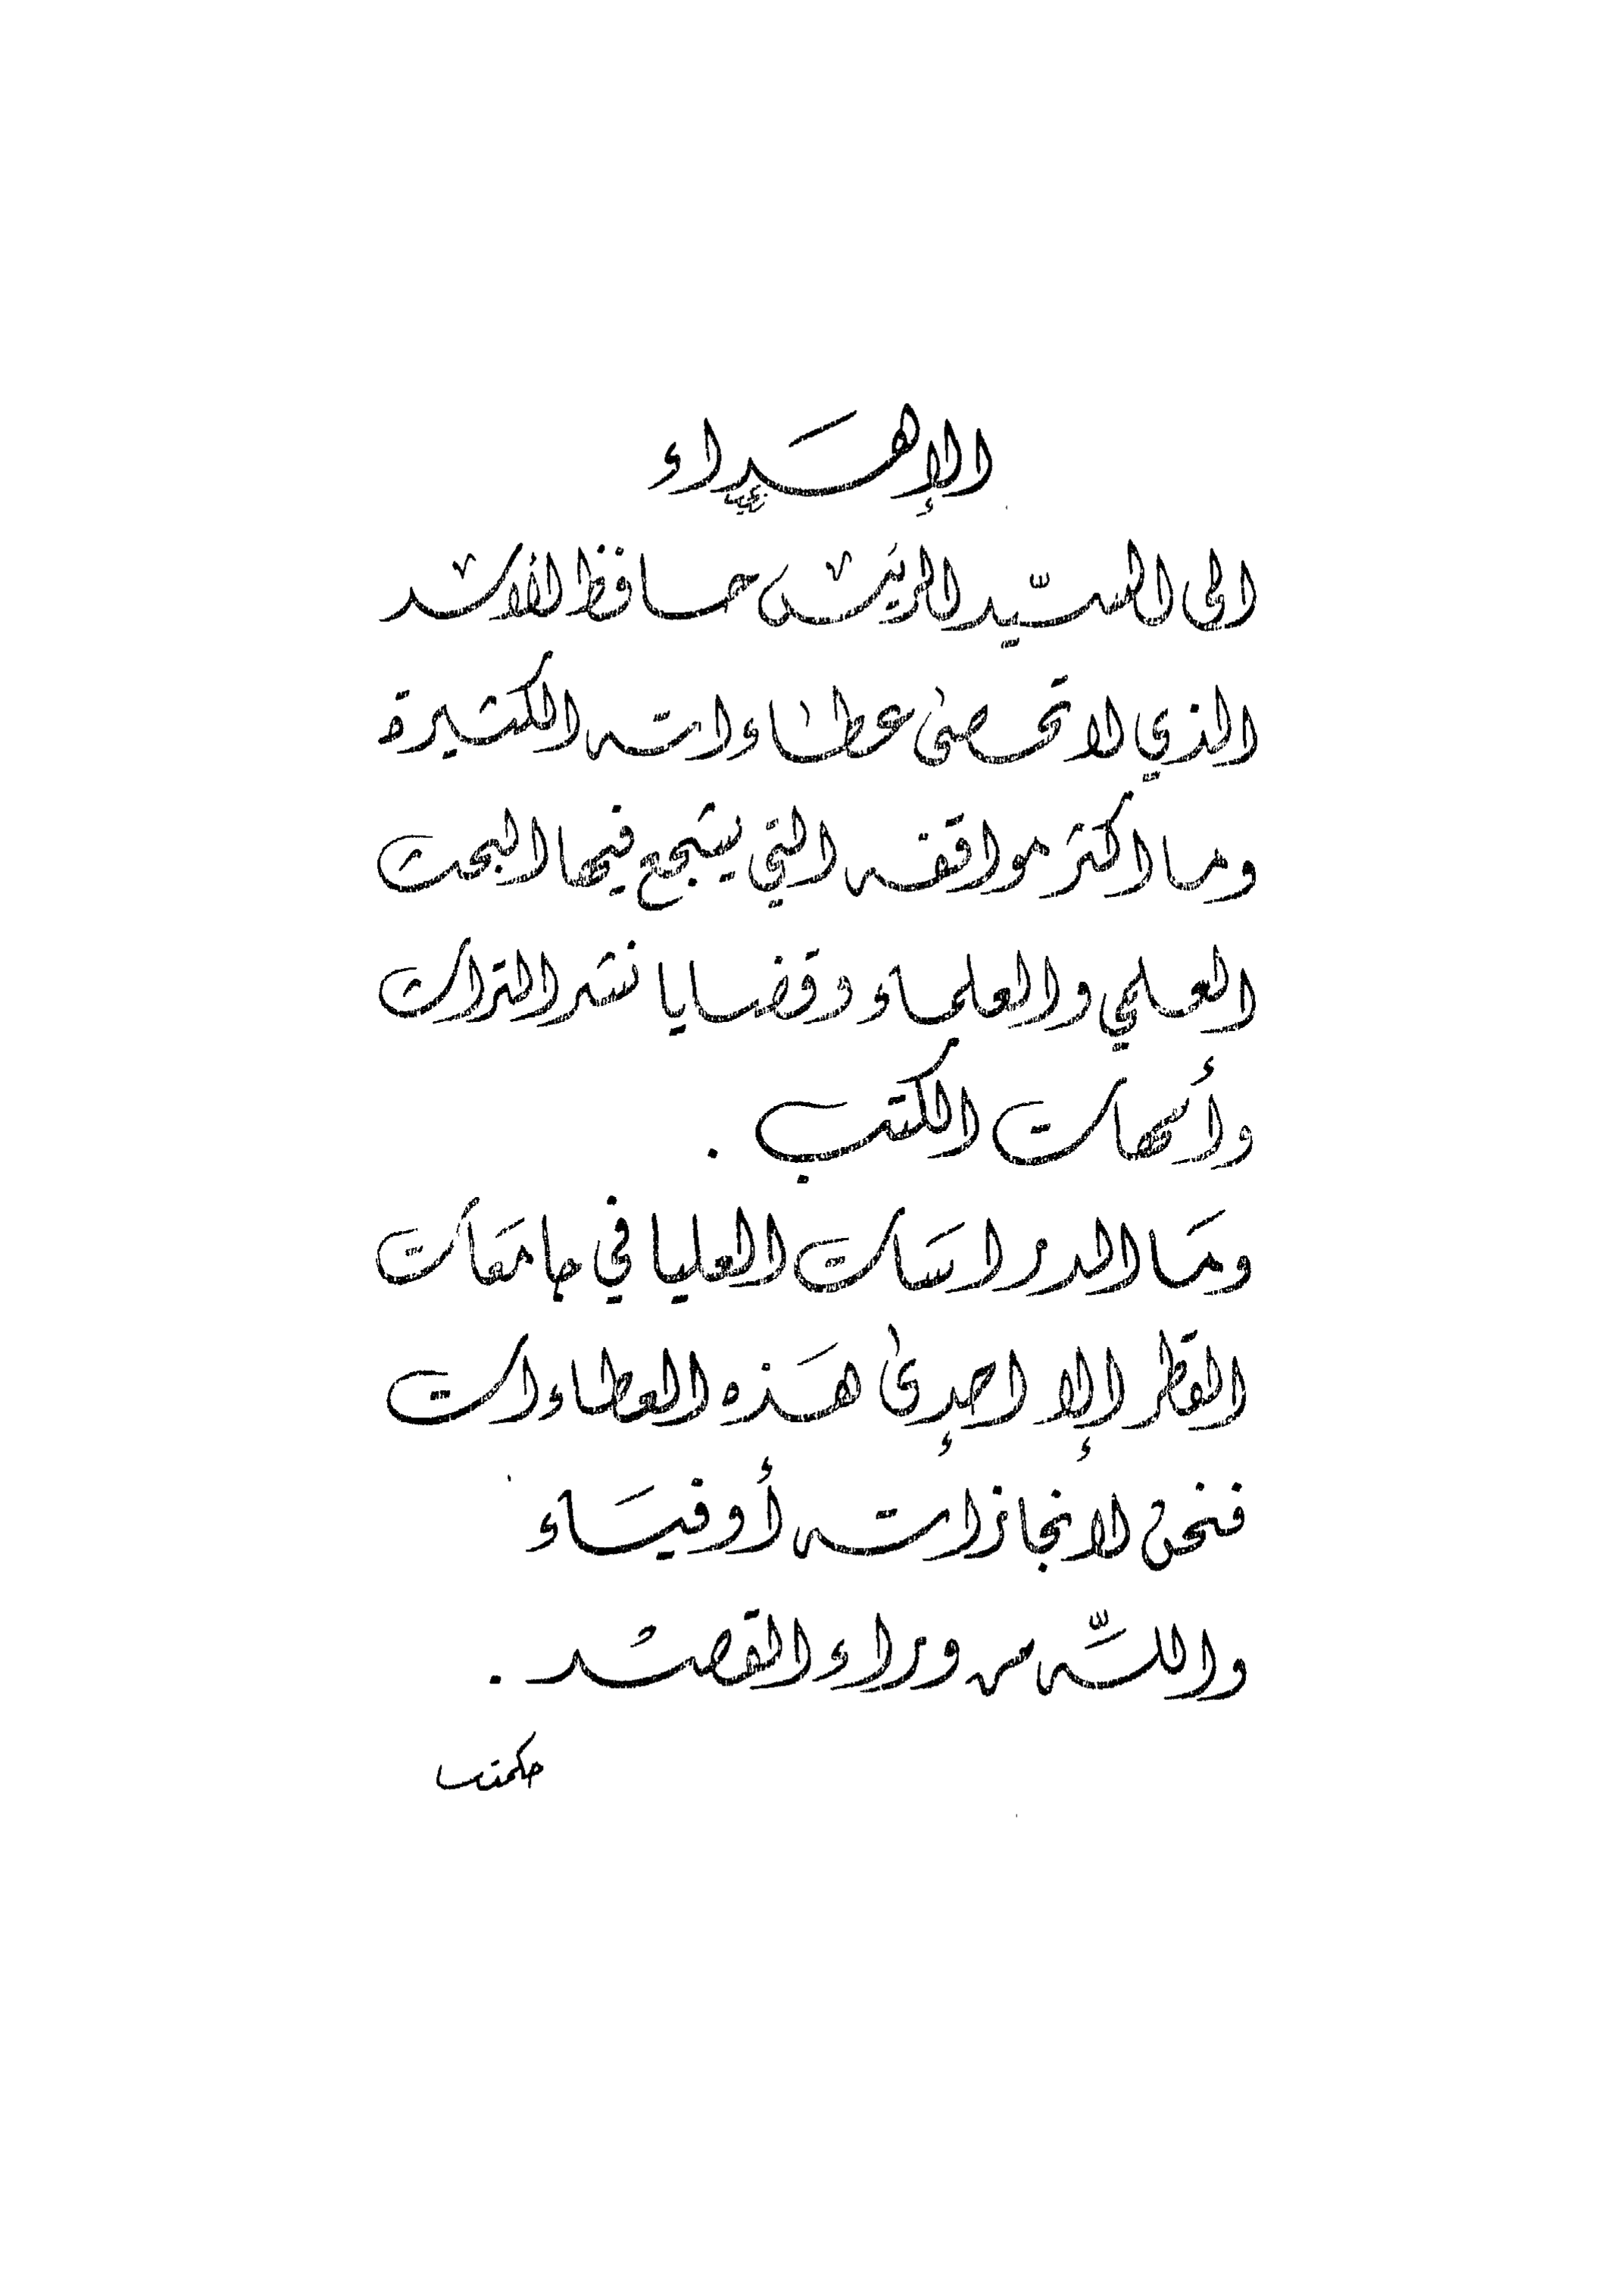 الإهداء
الى السّيد الرئيس حافظ الأسد
الذي لا تحصى عطاءاته الكثيرة
وما اكثر مواقفه التي يشجع فيها البحث
العلمي والعلماء وقضايا نشر التراث
وأمهات الكتب .
ومَا الدراسَات العليا في جامعَات
القطر إلا إحدى هَذه العطاءات
فنحن لإنجازاته أوفيَاء
واللّه من وراء القصد .
حكمت